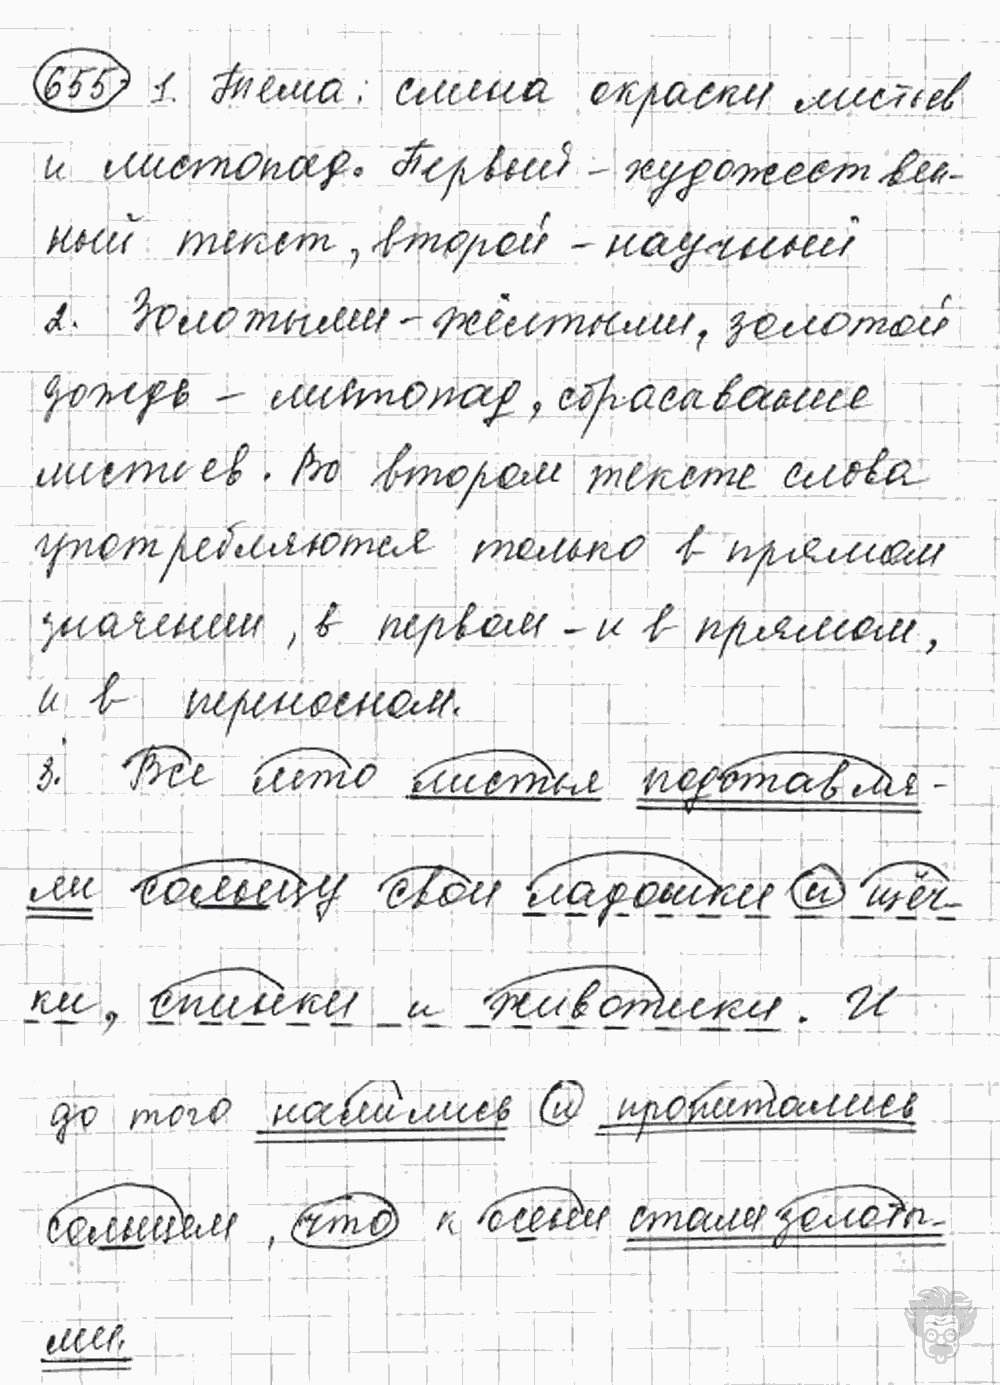 655. 1. Тема: смена окраски листьев
и листопад. Первый – художествен-
ный текст, второй – научный
2. Золотыми – жёлтыми, золотой
дождь – листопад, сбрасывание
листьев. Во втором тексте слова
употребляются только в прямом
значении, в первом – и в прямом,
и в переносном.
3. Все лето листья подставля-
ли солнцу свои ладошки и щёч-
ки, спинки и животики. И
до того налились и пропитались
солнцем, что к осени стали золоты-
ми.